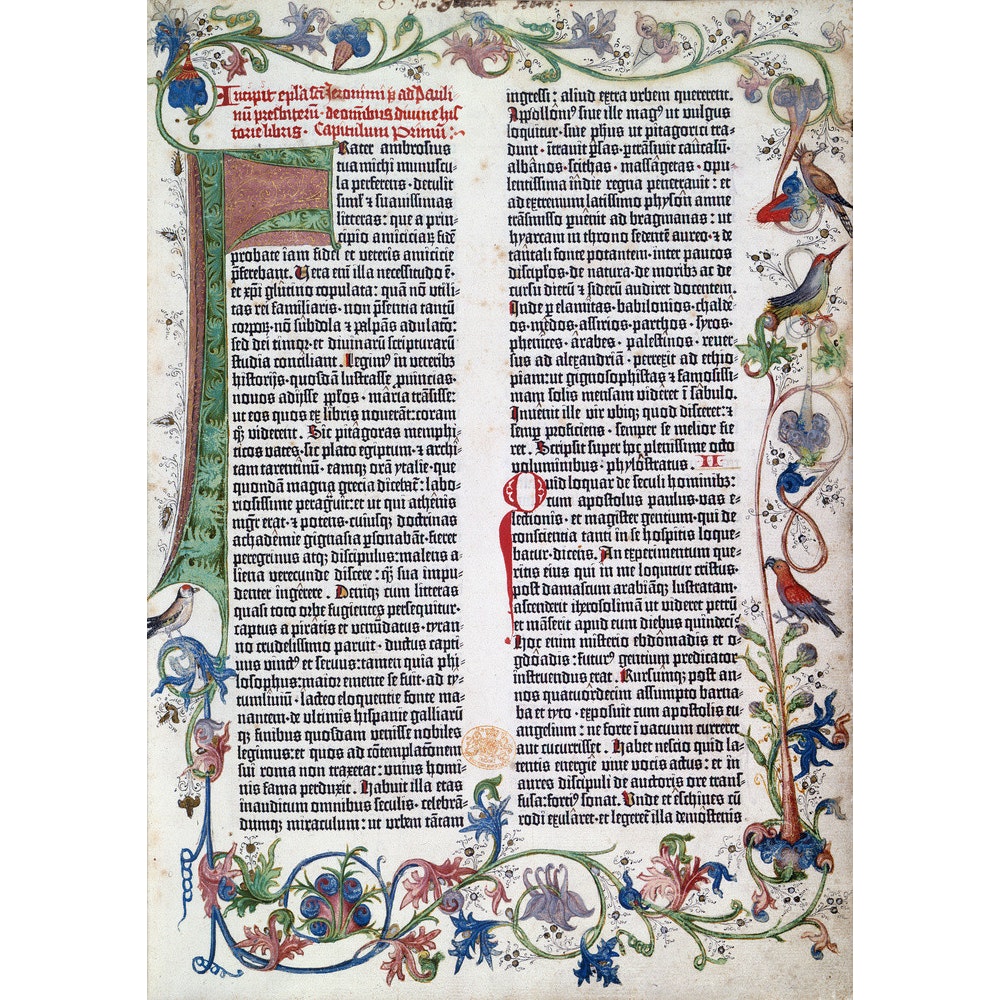 Incipit epl̃a sc̃i Jeronimi p̃ ad Pauli-
nū presbiterū · de omībus divine his-
torie libris · Capitulum Primū :
Frater ambrosius
tua michi munuscu-
la perferens · detulit
sil̃ et suauissimas
litteras : que a prin-
cipio amiciciar̃ · fidē
probate iam fidei et veteris amicicie
p̃ferebant . Uera eni illa necessitudo ē ·
et xp̃i glutino copulata : quam nō utili-
tas rei familiaris · non p̃sentia tantū
corpor̃ · nō subdola ⁊ palpās adulato :
sed dei timor · et diuinarū scripturarū
studia conciliant . Legimꝰ in veteribꝫ
historijs · quosdam lustrasse p̃uincias ·
nouos adijsse pp̃los · maria trāsisse :
ut eos quos ex libris nouerāt : coram
qꝫ viderent . Sic pitagoras memphi-
ticos vates · sic plato egiptum · ⁊ archi-
tam tarentinū · eamqꝫ orā ytalie · que
quondam magna grecia dicebat̃ : labo-
riosissime peragiuit · et ut qui athenis
mgr̃ erat · ⁊ potens · cuiusqꝫ doctrinas
achademie gignasia p̃sonabāt · fieret
peregrinus atqꝫ discipulus : malens a-
liena verecunde discere : qꝫ sua impu-
denter ingerere . Deniqꝫ cum litteras
quasi toto orbe fugientes persequitur ·
captus a piratis et venūdatus · tyran-
no crudelissimo paruit · ductus capti-
uus vinctꝰ et seruus : tamen quia phi-
losophus : maior emente se fuit · ad ty-
tumliuiū · lacteo eloquentie fonte ma-
nantem · de ultimis hispanie galliarū
qꝫ finibus quosdam venisse nobiles
legimus : et quos ad cōtemplatōnem
sui roma non traxerat : unius homi-
nis fama perduxit . Habuit illa etas
inauditum omnibus seculis · celebrā-
dumqꝫ miraculum : ut urbem tātam
ingressi : aliud extra urbem quererent.
Apolloniꝰ siue ille magꝰ ut vulgus
loquitur · siue ph̃us ut pitagorici tra-
dunt · ītrauit p̃sas · ptrāsiuit caucasū ·
albanos · scithas · massagetas · opu-
lentissima indie regna penetrauit : et
ad extremum latissimo physon amne
trāsmisso p̃uenit ad bragmanas : ut
hyarcam in throno sedentē aureo · ⁊ de
tantali fonte potantem · inter paucos
discip̃los · de natura · de moribꝫ ac de
cursu dierū ⁊ siderū audiret docentem.
Inde p̃ elamitas · babilonios · chalde-
os · medos · assirios · parthos · syros ·
phenices · arabes · palestinos · reuer-
sus ad alexandriā · perrexit ad ethio-
piam : ut gignosophistas ⁊ famosissi-
mam solis mensam videret ī sabulo.
Inuenit ille vir ubiqꝫ quod disceret : ⁊
semp̃ proficiens · semper se melior fie-
ret . Scripsit super hoc plenissime octo
voluminibus · phylostratus . II
Quid loquar de seculi hominibꝫ :
cum apostolus paulus · vas e-
lectionis · et magister gentium · qui de
consciencia tanti in se hospitis loque-
batur · dicens . An experimentum que-
ritis eius qui in me loquitur cristus ·
post damascum arabiāqꝫ lustratam
ascenderit iherosolimā ut videret petrū
et māserit apud eum diebus quindeci.
Hoc enim misterio ebdomadis et o-
gdoadis : futurꝰ gentium predicator
instruendus erat . Rursumqꝫ post an-
nos quatuordecim assumpto barna-
ba et tyto · exposuit cum apostolis eu-
angelium : ne forte in vacuum curreret
aut cucurrisset . Habet nescio quid la-
tentis energie viue vocis actus : et in
aures discipuli de auctoris ore trans-
fusa : fortiꝰ sonat . Unde et eschines cū
rodi exularet · et legeret illa demostenis